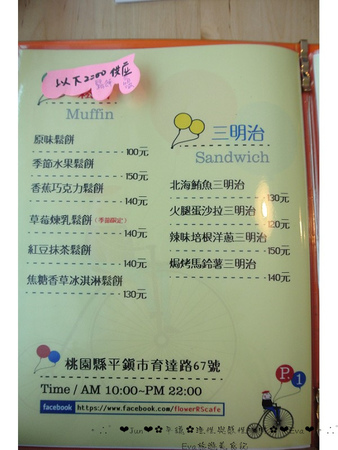 以下2200供應
Muffin
原味鬆餅
100元
季節水果鬆餅
150元
香蕉巧克力鬆餅
140元
草莓煉乳鬆餅(季節限定)
140元
紅豆抹茶鬆餅
140元
焦糖香草冰淇淋鬆餅
130元
三明治
Sandwich
北海鮪魚三明治
130元
火腿蛋沙拉三明治
120元
辣味培根洋蔥三明治
150元
焗烤馬鈴薯三明治
140元
桃園縣平鎮市育達路67號
Time / AM 10:00~PM 22:00
facebook https://www.facebook.com/flowerRScafe
P.1